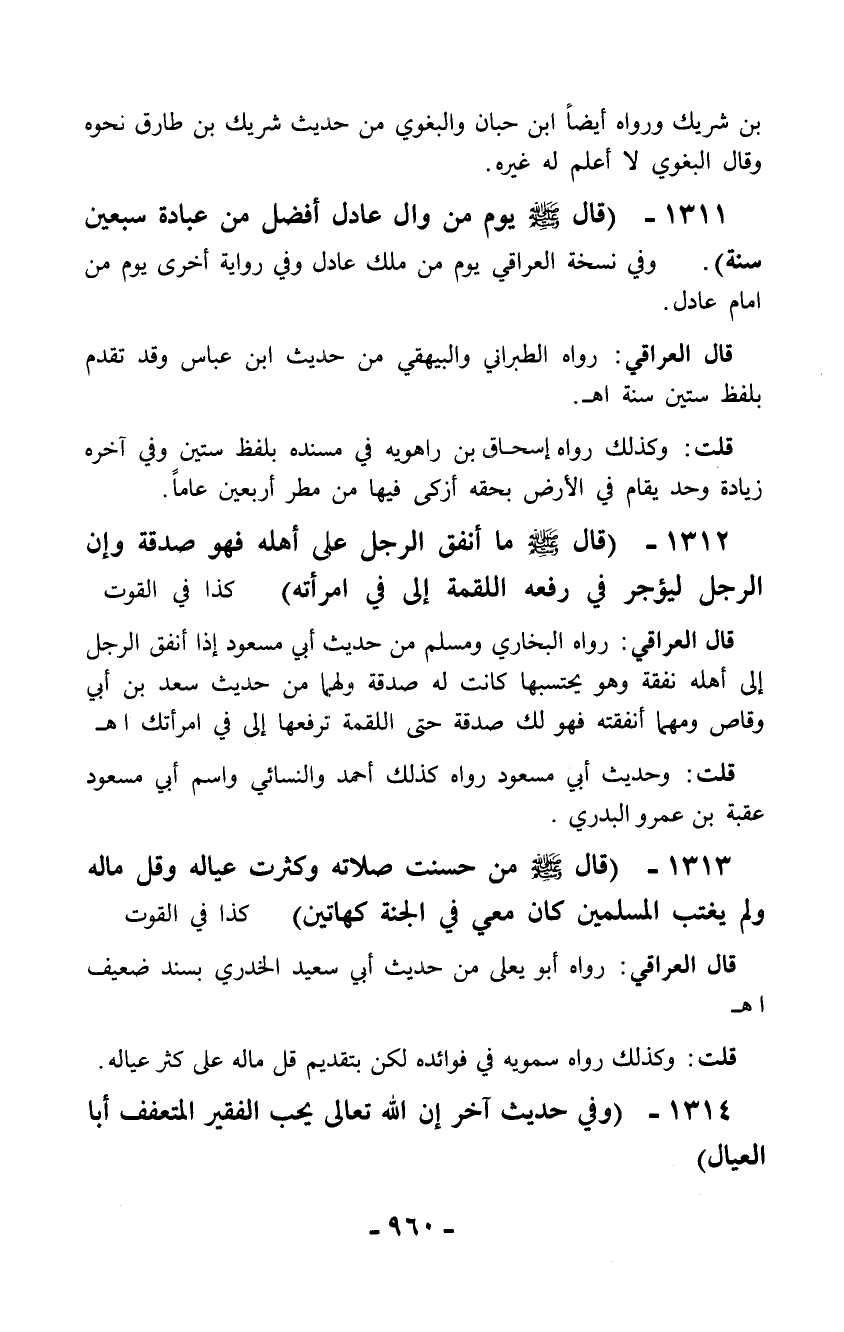 بن شريك ورواه أيضاً ابن حبان والبغوي من حديث شريك بن طارق نحوه
وقال البغوي لا أعلم له غيره.
١٣١١ - (قال ﷺ يوم من وال عادل أفضل من عبادة سبعين
سنة). وفي نسخة العراقي يوم من ملك عادل وفي رواية أخرى يوم من
امام عادل.
قال العراقي: رواه الطبراني والبيهقي من حديث ابن عباس وقد تقدم
بلفظ ستين سنة اهـ.
قلت: وكذلك رواه إسحاق بن راهويه في مسنده بلفظ ستين وفي آخره
زيادة وحد يقام في الأرض بحقه أزكى فيها من مطر أربعين عاماً.
١٣١٢ - (قال ﷺ ما أنفق الرجل على أهله فهو صدقة وإن
الرجل ليؤجر في رفعه اللقمة إلى في امرأته) كذا في القوت
قال العراقي: رواه البخاري ومسلم من حديث أبي مسعود إذا أنفق الرجل
إلى أهله نفقة وهو يحتسبها كانت له صدقة ولهما من حديث سعد بن أبي
وقاص ومهما أنفقته فهو لك صدقة حتى اللقمة ترفعها إلى في امرأتك ا هـ
قلت: وحديث أبي مسعود رواه كذلك أحمد والنسائي واسم أبي مسعود
عقبة بن عمرو البدري .
١٣١٣ - (قال ﷺ من حسنت صلاته وكثرت عياله وقل ماله
ولم يغتب المسلمين كان معي في الجنة كهاتين) كذا في القوت
قال العراقي: رواه أبو يعلى من حديث أبي سعيد الخدري بسند ضعيف
ا هـ
قلت: وكذلك رواه سمويه في فوائده لكن بتقديم قل ماله على كثر عياله.
١٣١٤ - (وفي حديث آخر إن الله تعالى يحب الفقير المتعفف أبا
العيال)
- ٩٦٠ -